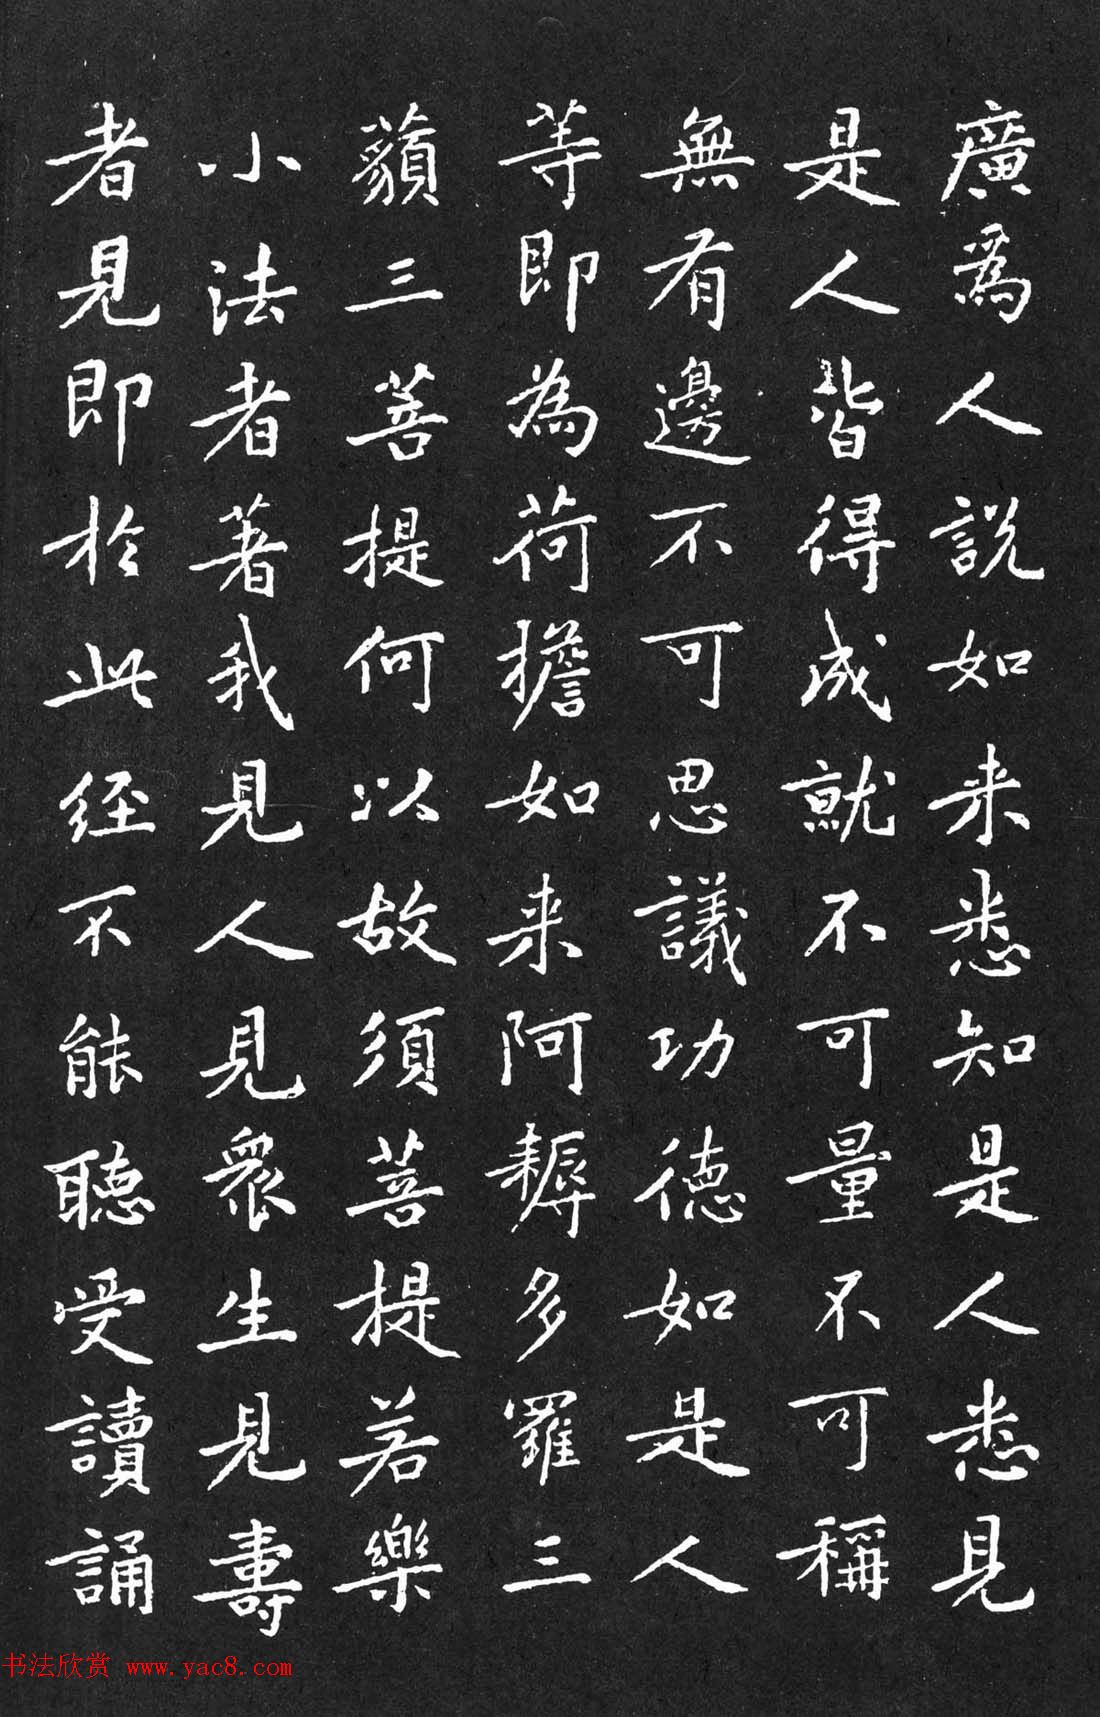 廣爲人說如来悉知是人悉見
是人皆得成就不可量不可稱
無有邊不可思議功德如是人
等即為荷擔如来阿耨多羅三
藐三菩提何以故須菩提若樂
小法者著我見人見衆生見壽
者見即於此経不能聽受讀誦
书法欣赏 www.yac8.com